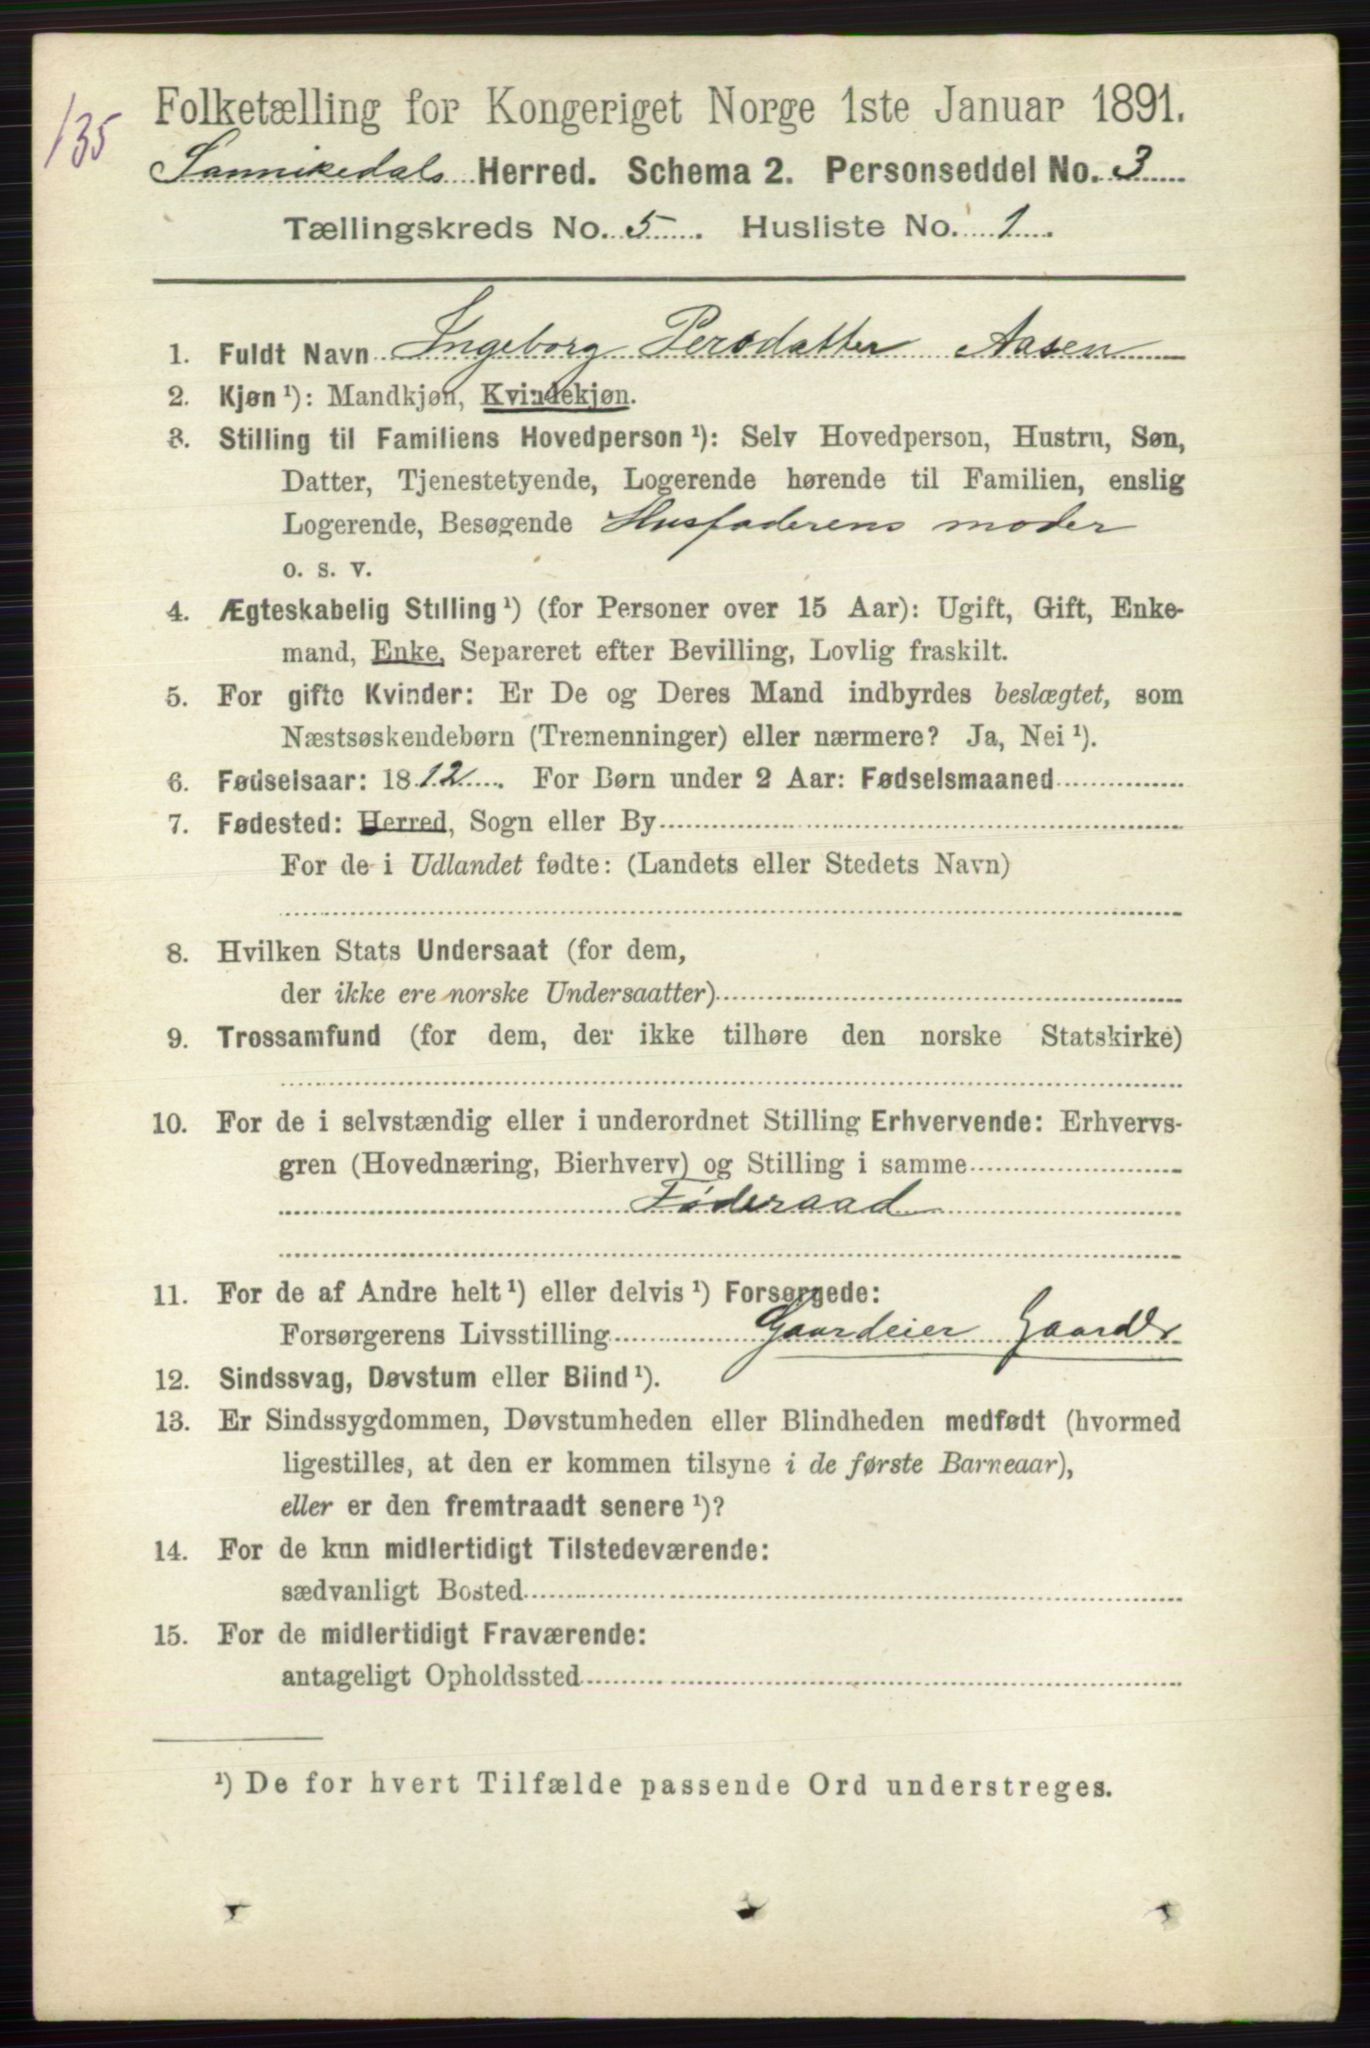 135
Folketælling for Kongeriget Norge 1ste Januar 1891.
Sannikedals Herred. Schema 2. Personseddel No. 3
Tællingskreds No. 5. Husliste No. 1.
1. Fuldt Navn Ingeborg Persdatter Aasen
2. Kjøn ¹): Mandkjøn, Kvindekjøn.
3. Stilling til Familiens Hovedperson ¹): Selv Hovedperson, Hustru, Søn,
Datter, Tjenestetyende, Logerende hørende til Familien, enslig
Logerende, Besøgende Husfaderens moder
o. s. v.
4. Ægteskabelig Stilling ¹) (for Personer over 15 Aar): Ugift, Gift, Enke-
mand, Enke, Separeret efter Bevilling, Lovlig fraskilt.
5. For gifte Kvinder: Er De og Deres Mand indbyrdes beslægtet, som
Næstsøskendebørn (Tremenninger) eller nærmere? Ja, Nei ¹).
6. Fødselsaar: 1812. For Børn under 2 Aar: Fødselsmaaned
7. Fødested: Herred, Sogn eller By
For de i Udlandet fødte: (Landets eller Stedets Navn)
8. Hvilken Stats Undersaat (for dem,
der ikke ere norske Undersaatter)
9. Trossamfund (for dem, der ikke tilhøre den norske Statskirke)
10. For de i selvstændig eller i underordnet Stilling Erhvervende: Erhvervs-
gren (Hovednæring, Bierhverv) og Stilling i samme
Føderaad
11. For de af Andre helt ¹) eller delvis ¹) Forsørgede:
Forsørgerens Livsstilling Gaardeier
12. Sindssvag, Døvstum eller Blind ¹).
13. Er Sindssygdommen, Døvstumheden eller Blindheden medfødt (hvormed
ligestilles, at den er kommen tilsyne i de første Barneaar),
eller er den fremtraadt senere ¹)?
14. For de kun midlertidigt Tilstedeværende:
sædvanligt Bosted
15. For de midlertidigt Fraværende:
antageligt Opholdssted
¹) De for hvert Tilfælde passende Ord understreges.